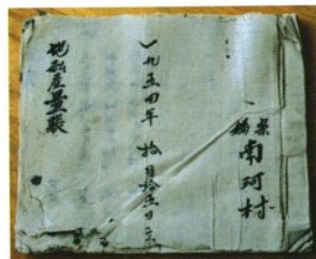 南河村
一九五四年 拾月拾五日立
地畝産量賬